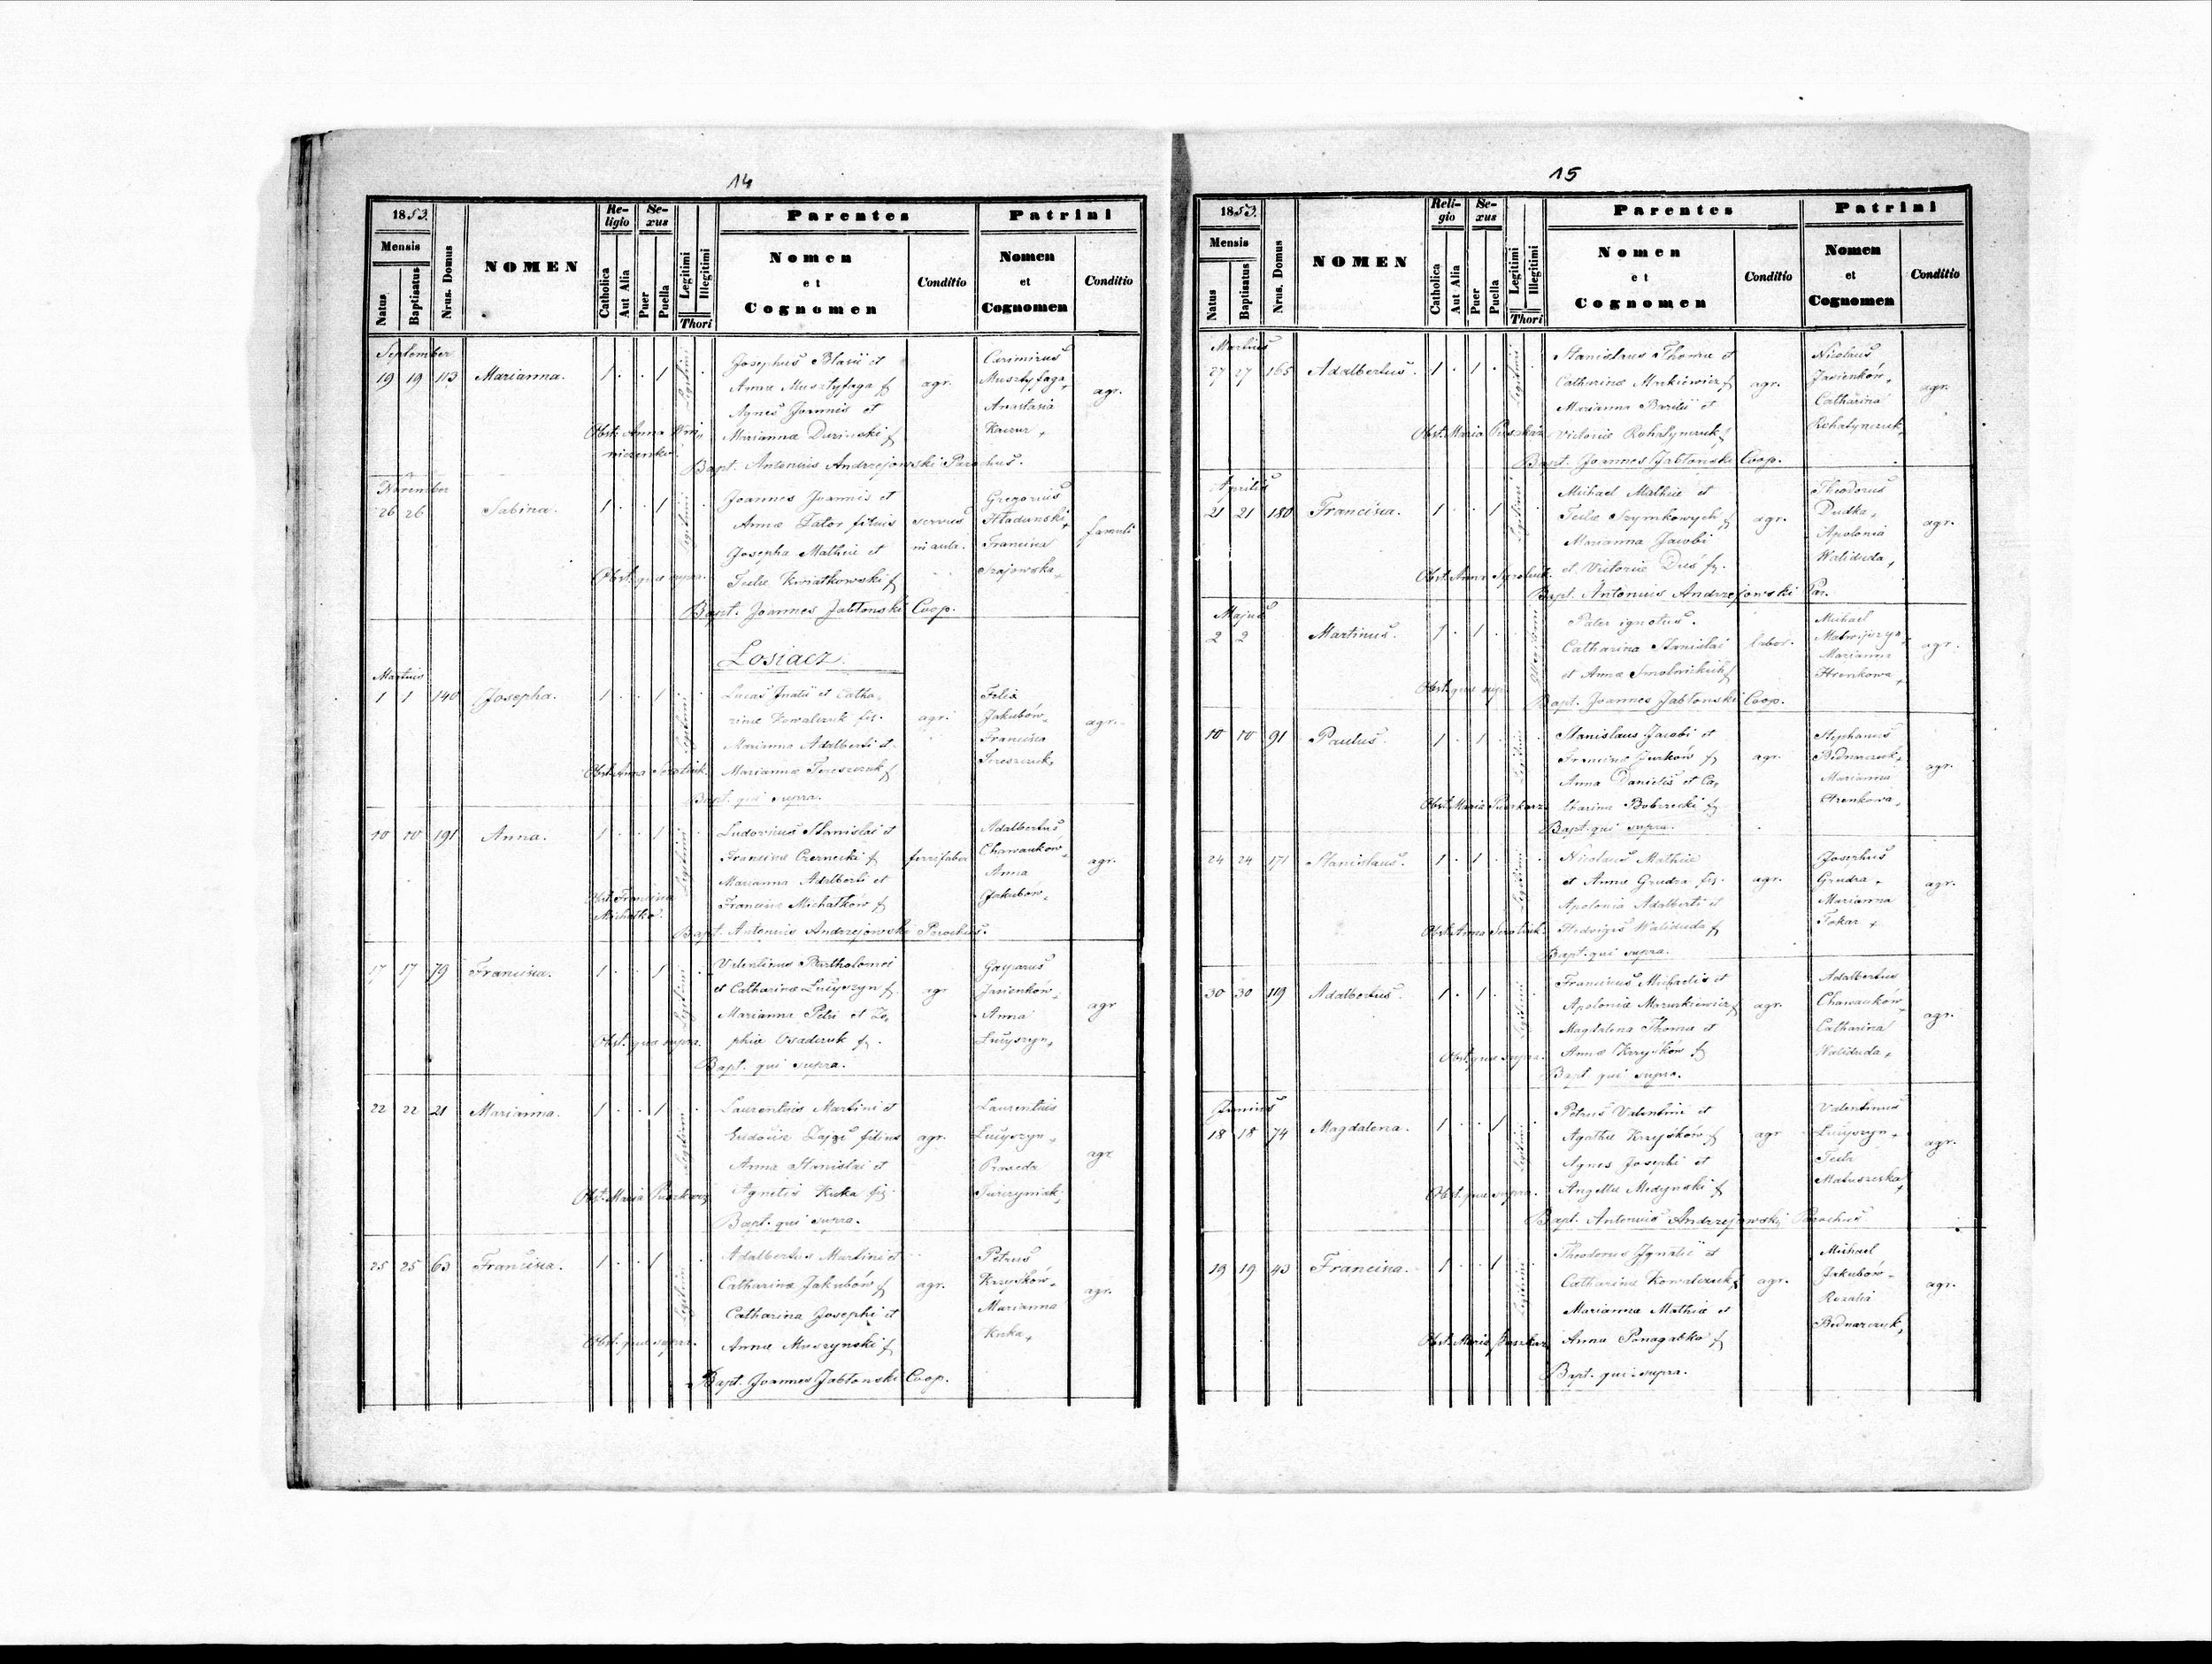 14
1853.
Religio
Sexus
Parentes
Patrini
Mensis
Natus
Baptisatus
Nrus. Domus
NOMEN
Catholica
Aut Alia
Puer
Puella
Legitimi
Illegitimi
Thori
Nomen
et
Cognomen
Conditio
Nomen
et
Cognomen
Conditio
September
19 19 113 Marianna. 1 . . 1 Legitimi .
Josephus Blasii et
Annae Musztyfaga f
Agnes Joannis et
Mariannae Duzinski f
agr.
Casimirus
Musztyfaga,
Anastasia
Kaczur,
agr.
Obst: Anna
Bapt. Antonius Andrzejowski Parochus.
November
26 26 Sabina. 1 . . 1 Legitimi
Joannes Joannis et
Annae Zator filius
Josepha Mathiae et
Teclae Kwiatkowski f
servus
in aula.
Gregorius
Hladunski,
Francisca
Szajowska,
famuli
Obst. quae supra.
Bapt. Joannes Jabłonski Coop.
Losiacz.
Martius
1 1 140 Josepha. 1 . . 1 Legitimi .
Lucas Ignatii et Catha-
rinae Kowalczuk fis.
Marianna Adalberti et
Mariannae Tereszczuk f
agr.
Felix
Jakubów,
Francisca
Tereszczuk,
agr.
Obst. Anna
Bapt. qui supra.
10 10 191 Anna. 1 . . 1 Legitimi .
Ludovicus Stanislai et
Franciscae Czernecki f
Marianna Adalberti et
Franciscae Michałków f
ferrifaber
Adalbertus
Chawauków,
Anna
Jakubów,
agr.
Obst. Francisca
Michałko.
Bapt. Antonius Andrzejowski Parochus.
17 17 79 Francisca. 1 . . 1 Legitimi
Valentinus Bartholomei
et Catharinae Łucyszyn f
Marianna Petri et Zo-
phiae Osadczuk f.
agr
Gasparus
Jasienków,
Anna
Łucyszyn,
agr
Obst. quae supra.
Bapt. qui supra.
22 22 21 Marianna. 1 . . 1 Legitimi .
Laurentius Martini et
Eudociae Zając filius
Anna Stanislai et
Agnetis Kuka fis.
agr.
Laurentius
Łucyszyn,
agr
Obst. Maria Puszkarz
Bapt. qui supra.
25 25 63 Francisca. 1 . . 1 Legitimi .
Adalbertus Martini et
Catharinae Jakubów f
Catharina Josephi et
Annae Muszynski f
agr.
Petrus
Krzyśków,
Marianna
Kuka,
agr.
Obst. quae supra.
Bapt. Joannes Jabłonski Coop.
15
1853.
Religio
Sexus
Parentes
Patrini
Mensis
Natus
Baptisatus
Nrus. Domus
NOMEN
Catholica
Aut Alia
Puer
Puella
Legitimi
Illegitimi
Thori
Nomen
et
Cognomen
Conditio
Nomen
et
Cognomen
Conditio
Martius
27 27 165 Adalbertus. 1 . 1 . Legitimi
Stanislaus Thomae et
Catharinae Markiewicz f
Marianna Basilii et
Victoriae Rohatynczuk f
agr.
Nicolaus
Jasienków,
Catharina
Rohatynczuk,
agr.
Obst. Maria Puszkarz
Bapt. Joannes Jabłonski Coop.
Aprilis
21 21 180 Francisca. 1 . . 1 Legitimi
Michael Mathiae et
Teclae Szymkowych f
Marianna Jacobi
et Victoriae Duś f.
agr.
Theodorus
Dudka,
Apolonia
Waliduda,
agr.
Obst. Anna
Bapt. Antonius Andrzejowski Par.
Majus
2 2 Martinus. 1 . 1 . Illegitimi
Pater ignotus.
Catharina Stanislai
et Annae
labor.
Michael
Marianna
Hrenkowa,
agr.
Obst. quae sup.
Bapt. Joannes Jabłonski Coop.
10 10 91 Paulus. 1 . 1 . Legitimi
Stanislaus Jacobi et
Franciscae Jurków f
Anna Danielis et Ca-
tharinae Bobrzecki f
agr.
Stephanus
Bednarczuk,
Marianna
Hrenkowa,
agr.
Obst. Maria Puszkarz.
Bapt. qui supra.
24 24 171 Stanislaus. 1 . 1 . Legitimi
Nicolaus Mathiae
et Annae Grudza fis.
Apolonia Adalberti et
Hedvigis Waliduda f
agr.
Josephus
Grudza,
Marianna
Tokar,
agr.
Obst. Anna
Bapt. qui supra.
30 30 119 Adalbertus. 1 . 1 . Legitimi
Franciscus Michaelis et
Apoloniae Mazurkiewicz f
Magdalena Thomae et
Annae Krzyśków f
agr.
Adalbertus
Chawauków,
Catharina
Waliduda,
agr.
Obst. quae supra.
Bapt. qui supra.
Junius
18 18 74 Magdalena. 1 . . 1 Legitimi
Petrus Valentini et
Agathae Krzyśków f
Agnes Josephi et
Angellae Medynski f
agr
Valentinus
Łucyszyn,
Tecla
Matuszeska,
agr.
Obst. quae supra.
Bapt. Antonius Andrzejowski Parochus
19 19 43 Francisca. 1 . . 1 Legitimi
Theodorus Ignatii et
Catharinae Kowalczuk f
Marianna Mathiae et
Annae Ponagałko f
agr.
Michael
Jakubów,
Rozalia
Bednarczuk,
agr.
Obst. Maria Puszkarz
Bapt. qui supra.